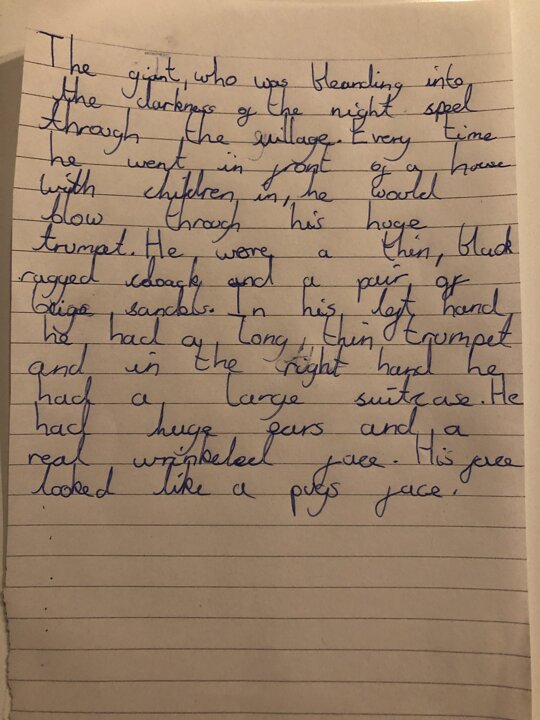 The giant, who was bleanding into
the darkness of the night sped
through the village. Every time
he went in front of a house
with children in, he would
blow through his huge
trumpet. He wore a thin, black
ragged and a pair of
beige sandals. In his left hand
he had a long, thin trumpet
and in the right hand he
had a large suitcase. He
had huge ears and a
real wrinkeled face. His face
looked like a pugs face.